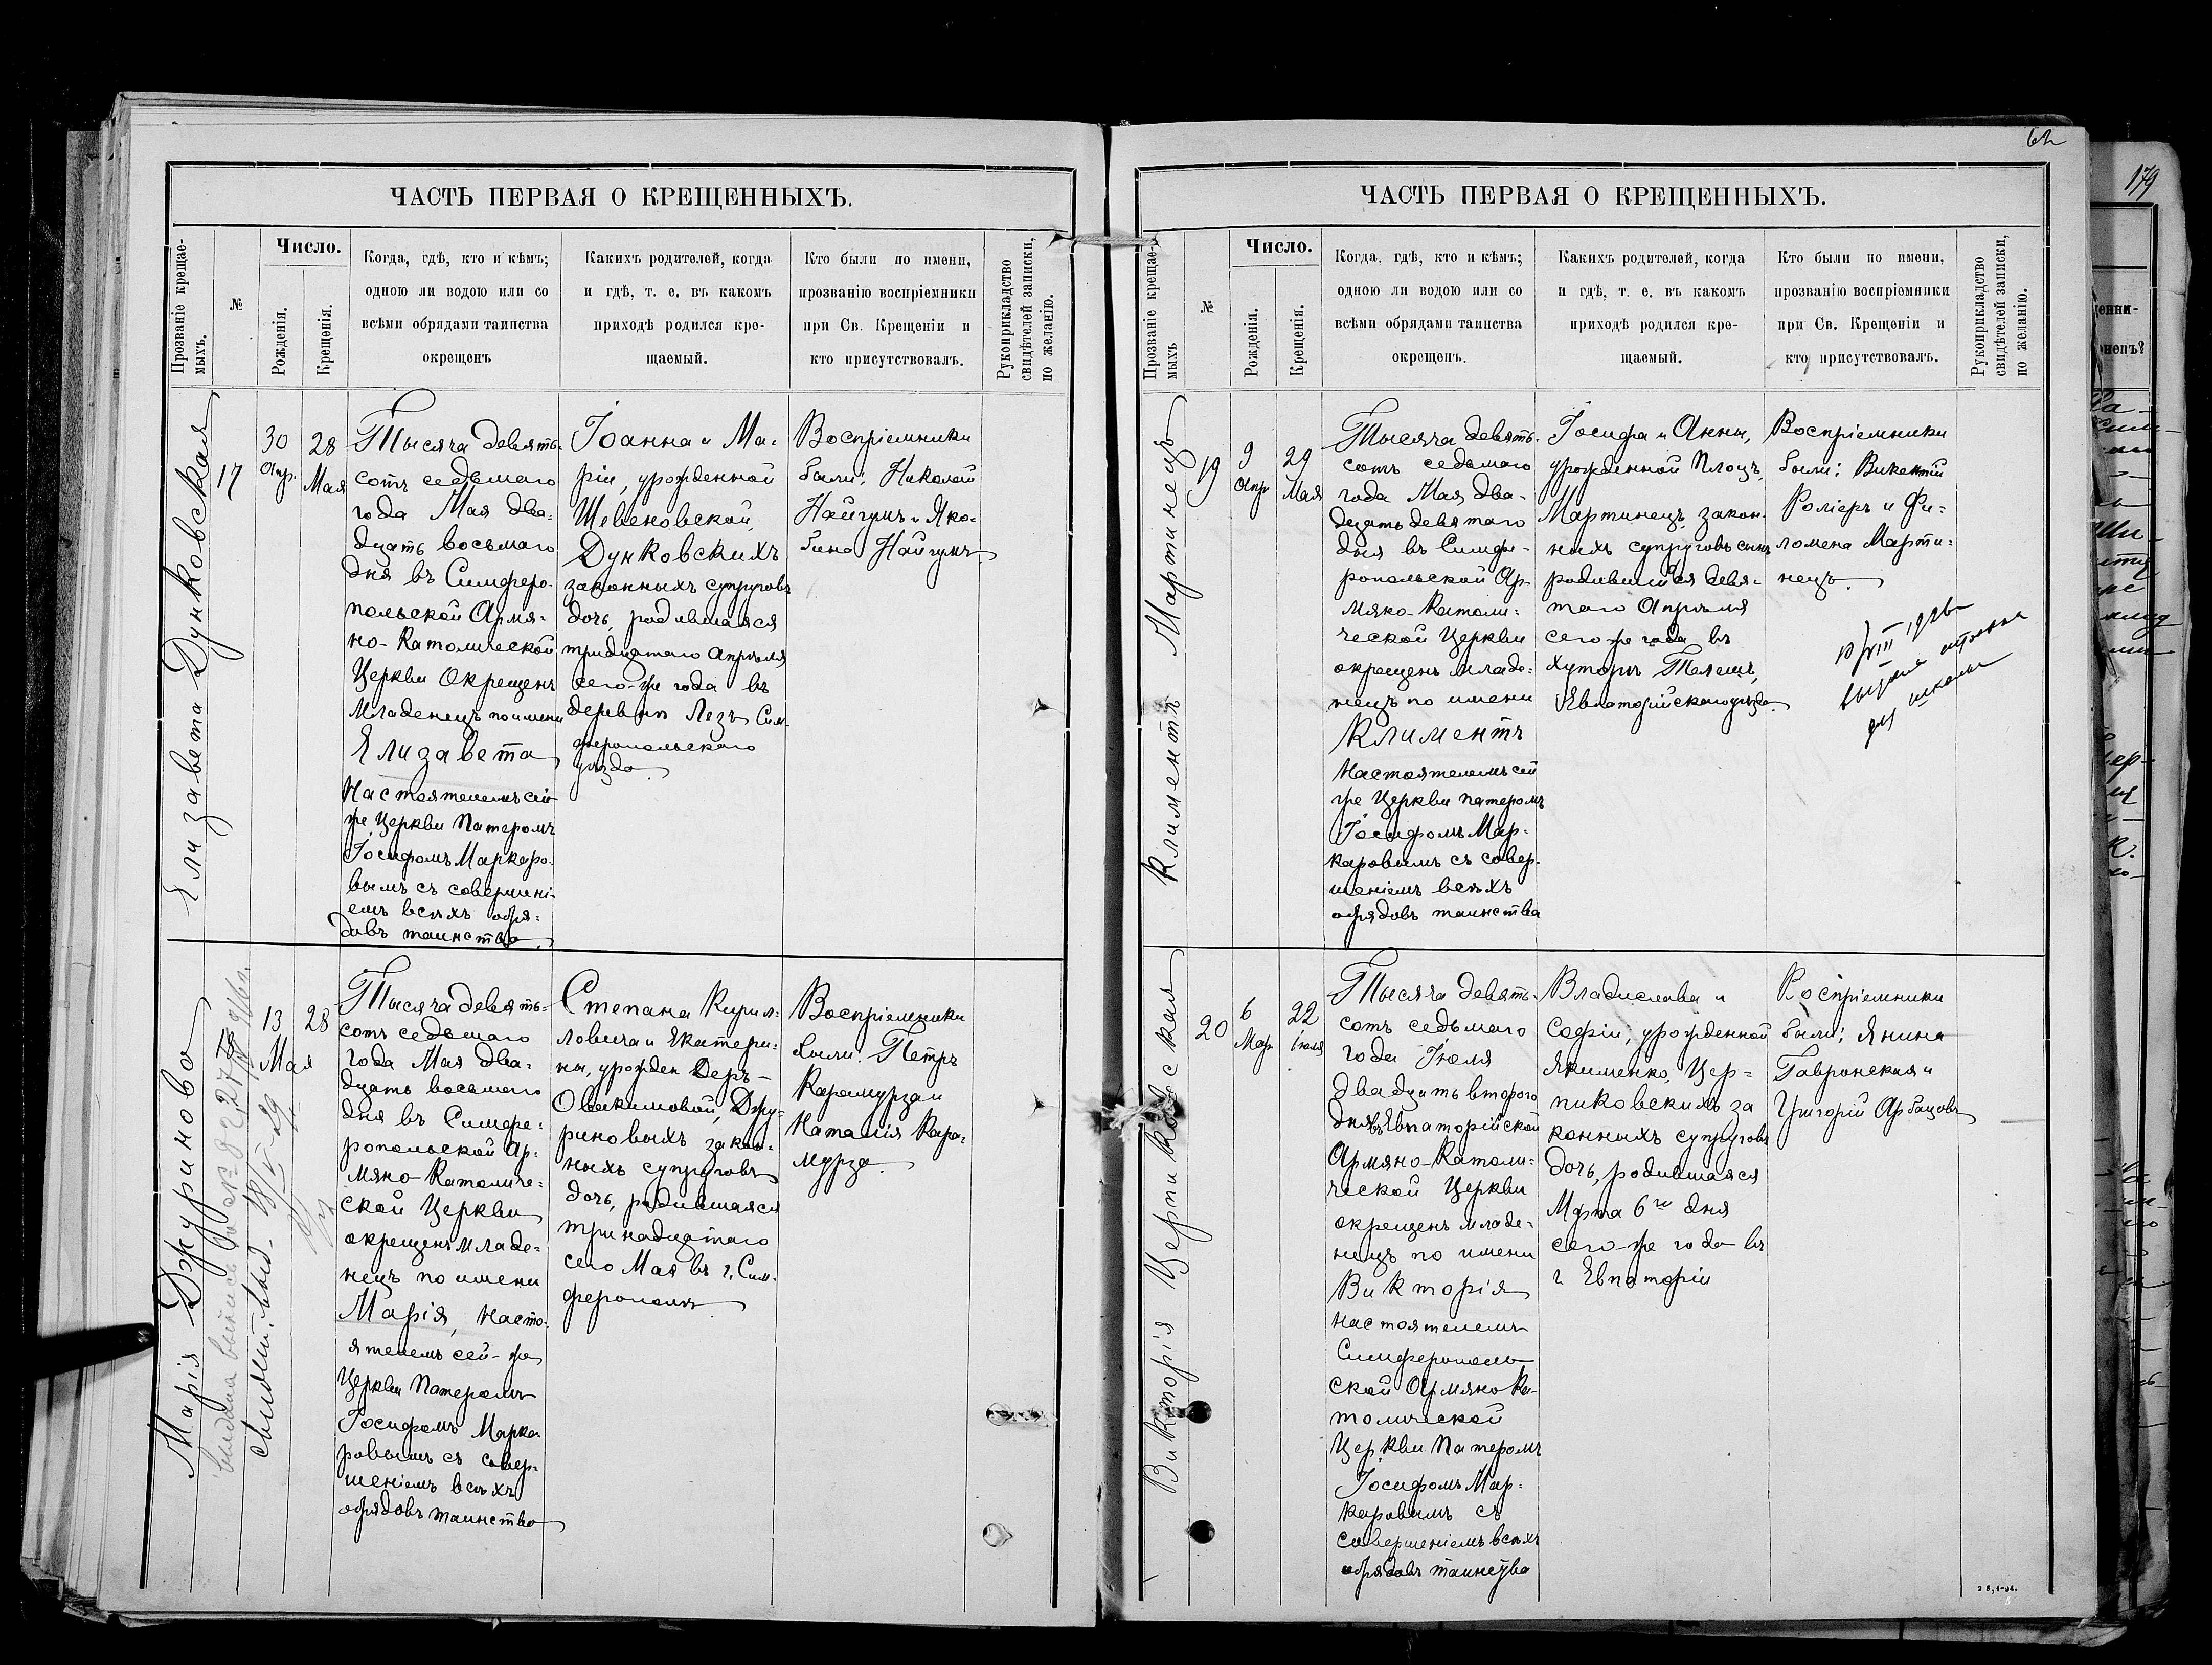 ЧАСТЬ ПЕРВАЯ О КРЕЩЕННЫХЪ.
Прозваніе крещае-
мыхъ.
№
Число.
Рожденія.
Крещенія.
Когда, гдѣ, кто и кѣмъ;
одною ли водою или со
всѣми обрядами таинства
окрещенъ
Какихъ родителей, когда
и гдѣ, т. е. въ какомъ
приходѣ родился кре-
щаемый.
Кто были по имени,
прозванію воспріемники
при Св. Крещеніи и
кто присутствовалъ.
Рукоприкладство
свидѣтелей записки,
по желанію.
Елизавета Дунковская
17
30
Апр.
28
Мая
Тысяча девять-
сотъ седьмаго
года Мая два-
дцать восьмаго
дня въ Симферо-
польской Армя-
но-Католической
Церкви Окрещенъ
Младенецъ по имени
Елизавета
Настоятелемъ сей
же Церкви Патеромъ
Іосифомъ Маркаро-
вымъ съ совершені-
емъ всѣхъ обря-
довъ таинства.
Іоанна и Ма-
ріи, урожденной
Шевеновской,
Дунковскихъ
законныхъ супруговъ
дочь, родившаяся
тридцатаго Апрѣля
сего-же года въ
деревнѣ Лезъ Сим-
феропольскаго
уѣзда.
Воспріемники
были: Николай
Найгумъ и Яко-
бина Найгумъ.
Марія Джуринова
13
Мая
28
Тысяча девять-
сотъ седьмаго
года Мая два-
дцать восьмаго
дня въ Симфе-
ропольской Ар-
мяно-Католиче-
ской Церкви
окрещенъ младе-
нецъ по имени
Марія, Насто-
ятелемъ сей-же
Церкви Патеромъ
Іосифомъ Марка-
ровымъ съ совер-
шеніемъ всѣхъ
обрядовъ таинства
Степана Кирил-
ловича и Екатери-
ны, урожден Деръ-
Овакимовой, Джу-
риновыхъ закон-
ныхъ супруговъ
дочь, родившаяся
тринадцатаго
сего Мая въ г. Сим-
ферополѣ
Воспріемники
были: Петръ
Карамурза и
Наталія Кара-
мурза.
62
ЧАСТЬ ПЕРВАЯ О КРЕЩЕННЫХЪ.
Прозваніе крещае-
мыхъ
№
Число.
Рожденія.
Крещенія.
Когда, гдѣ, кто и кѣмъ;
одною ли водою или со
всѣми обрядами таинства
окрещенъ.
Какихъ родителей, когда
и гдѣ, т. е. въ какомъ
приходѣ родился кре-
щаемый.
Кто были по имени,
прозванію воспріемники
при Св. Крещеніи и
кто присутствовалъ.
Рукоприкладство
свидѣтелей записки,
по желанію.
Климентъ Мартинецъ
19
9
Апр
29
Мая
Тысяча девять-
сотъ седьмаго
года Мая два-
дцать девятаго
дня въ Симфе-
ропольской Ар-
мяно-Католи-
ческой Церкви
окрещенъ младе-
нецъ по имени
Климентъ
Настоятелемъ сей
же Церкви Патеромъ
Іосифомъ Мар-
каровымъ съ совер-
шеніемъ всѣхъ
обрядовъ таинства
Іосифа и Анны,
урожденной Плоцъ,
Мартинецъ, закон-
ныхъ супруговъ сынъ
родившійся девя-
таго Апрѣля
сего же года въ
хуторѣ
Евпаторійскаго уѣзда.
Воспріемники
были: Викентій
Роліеръ и Фи-
ломена Марти-
нецъ.
Викторія Церпиковская
20
6
Мар
22
Іюля
Тысяча девять-
сотъ седьмаго
года Іюля
двадцать втораго
дня въ Евпаторійской
Армяно-Католи-
ческой Церкви
окрещенъ младе-
нецъ по имени
Викторія
Настоятелемъ
Симферополь-
ской Армяно Ка-
толической
Церкви Патеромъ
Іосифомъ Мар-
каровымъ съ
совершеніемъ всѣхъ
обрядовъ таинства
Владислава и
Софіи, урожденной
Якименко, Цер-
пиковскихъ за
конныхъ супруговъ
дочь, родившаяся
Марта 6го дня
сего-же года въ
г. Евпаторіи
Воспріемники
были: Янина
Гавронская и
Григорій Арбацовъ
179